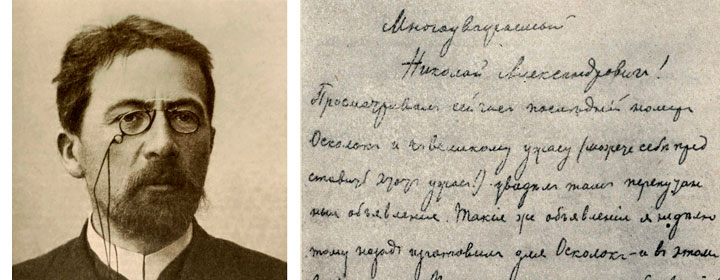 Многоуважаемый
Николай Александрович!
Просматривалъ сейчасъ последній номеръ
Осколокъ и къ великому ужасу (можете себѣ пред
ставить этотъ ужасъ!) увидѣлъ тамъ перепутан
ныя объявленія. Такія же объявленія я недѣлю
тому назадъ изготовилъ для Осколокъ — и въ этомъ